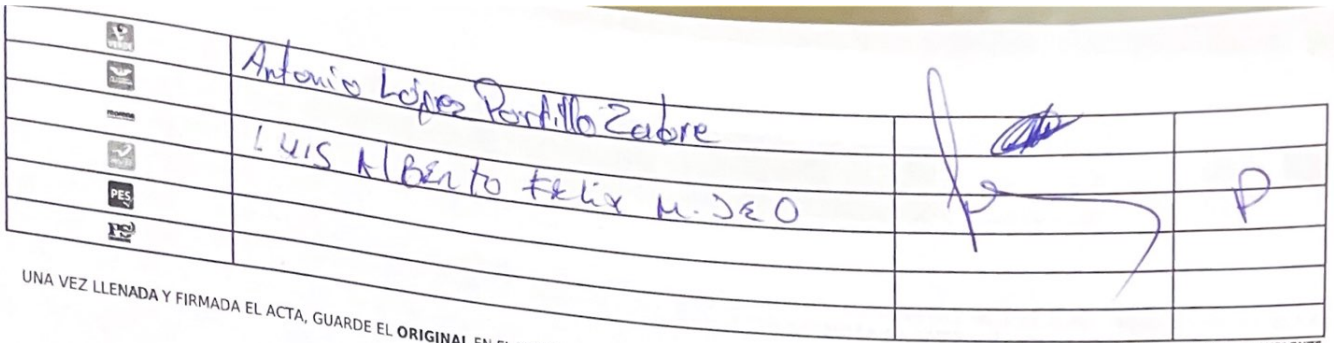 VERDE
Antonio López Portillo Zabre
morena
LUIS AlBErto Félix M.
P
PES
PS
UNA VEZ LLENADA Y FIRMADA EL ACTA, GUARDE EL ORIGINAL EN